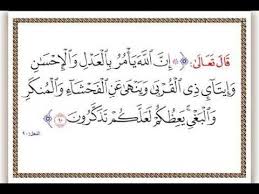 قَالَ تَعَالَىٰ: ﴿ ۞ إِنَّ ٱللَّهَ يَأۡمُرُ بِٱلۡعَدۡلِ وَٱلۡإِحۡسَٰنِ
وَإِيتَآيِٕ ذِي ٱلۡقُرۡبَىٰ وَيَنۡهَىٰ عَنِ ٱلۡفَحۡشَآءِ وَٱلۡمُنكَرِ
وَٱلۡبَغۡيِۚ يَعِظُكُمۡ لَعَلَّكُمۡ تَذَكَّرُونَ ٩٠ ﴾
النحل: ٩٠